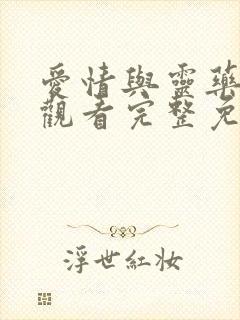 愛情與靈藥
觀看完整免
浮世紅妝